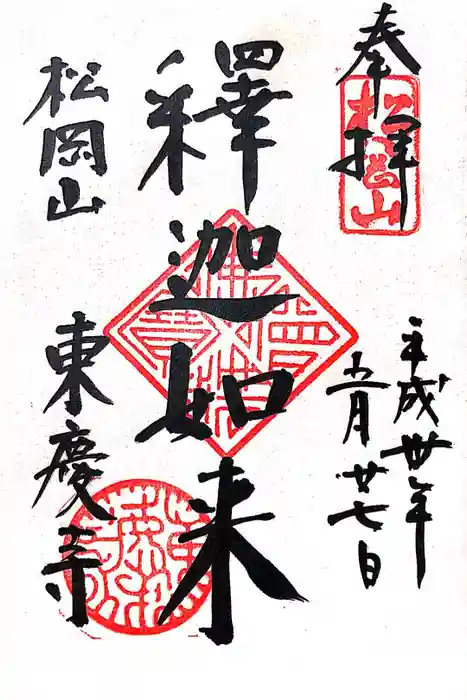 奉拝
松岡山
平成卅年
五月廿七日
釋迦如来
松岡山
東慶寺